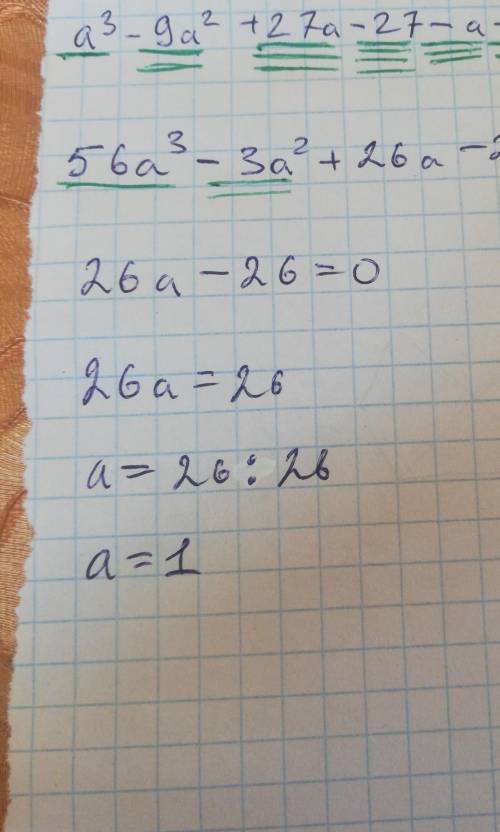 a³ - 9a² + 27a - 27 - a
56a³ - 3a² + 26a -
26a - 26 = 0
26a = 26
a = 26 : 26
a = 1